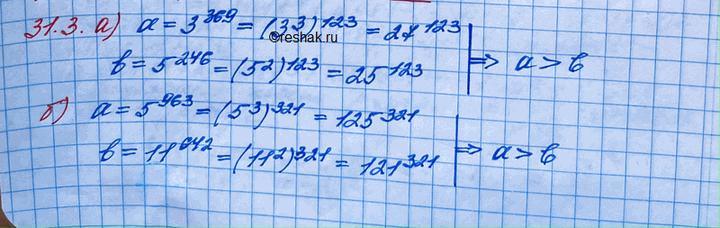 31.3. а) a = 3^369 = (3^3)^123 = 27^123
©reshak.ru
b = 5^246 = (5^2)^123 = 25^123 ⇒ a > b
б) a = 5^963 = (5^3)^321 = 125^321
b = 11^642 = (11^2)^321 = 121^321 ⇒ a > b